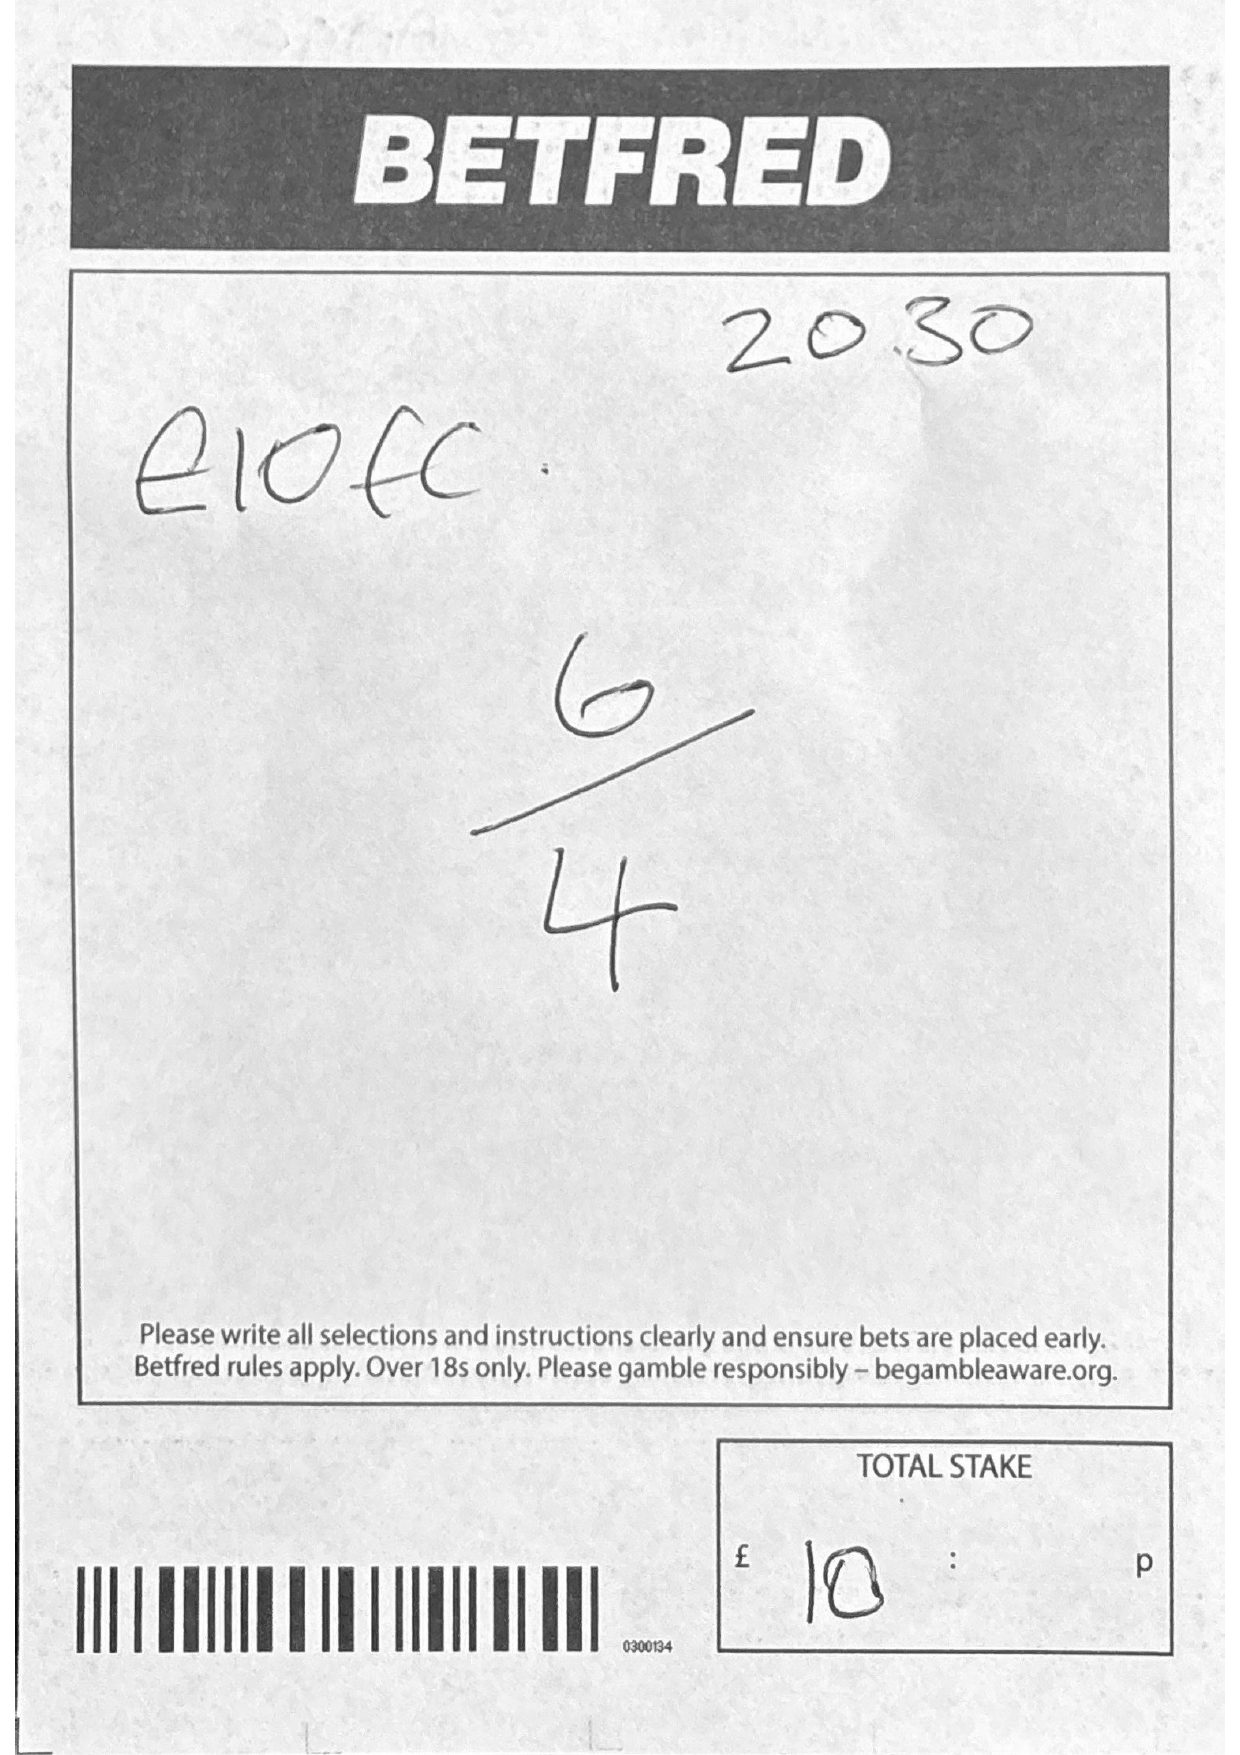 BETFRED
20.30
£10 FC.
6/4
Please write all selections and instructions clearly and ensure bets are placed early.
Betfred rules apply. Over 18s only. Please gamble responsibly – begambleaware.org.
TOTAL STAKE
£ 10 : p
0300134